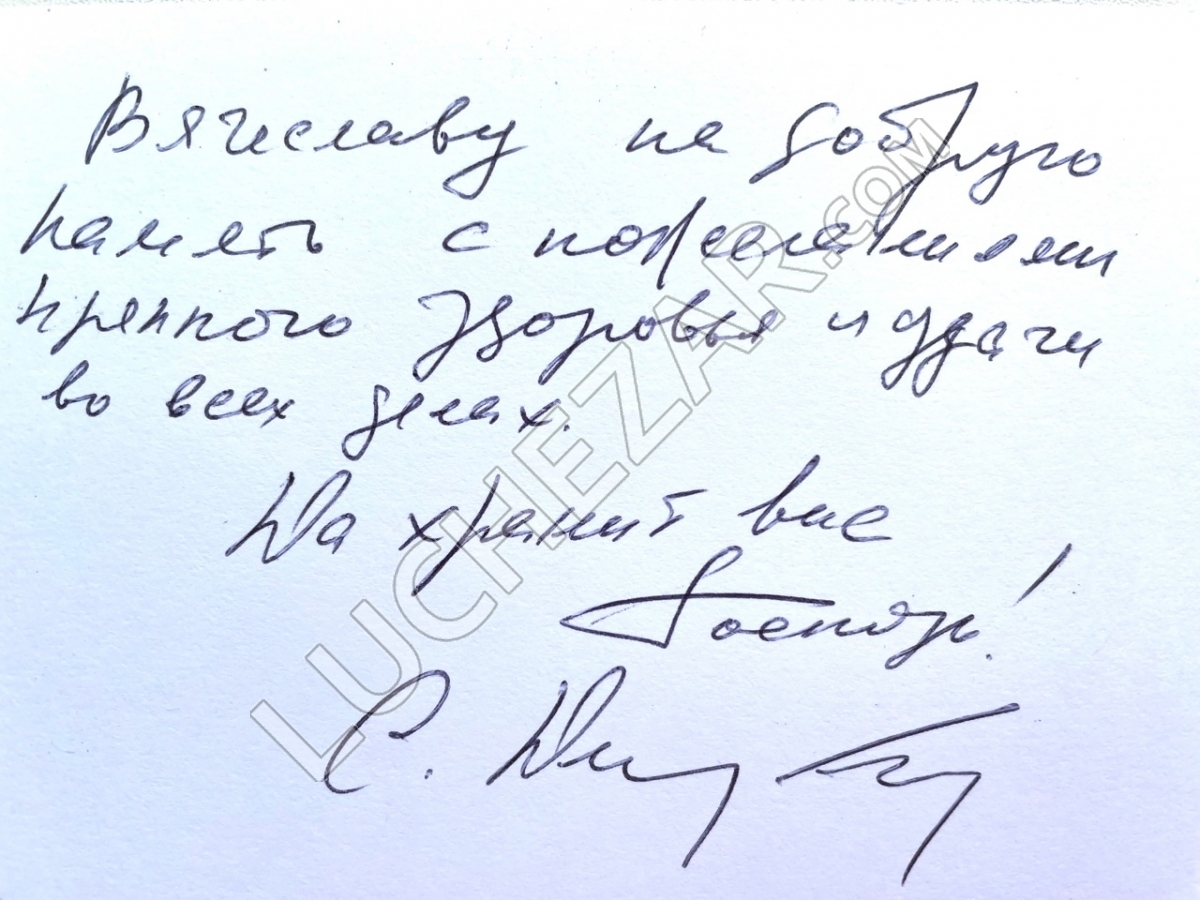 Вячеславу на добрую
память с пожеланиями
крепкого здоровья и удачи
во всех делах.
Да хранит вас
Господь!
С.
LUCHEZAR.COM